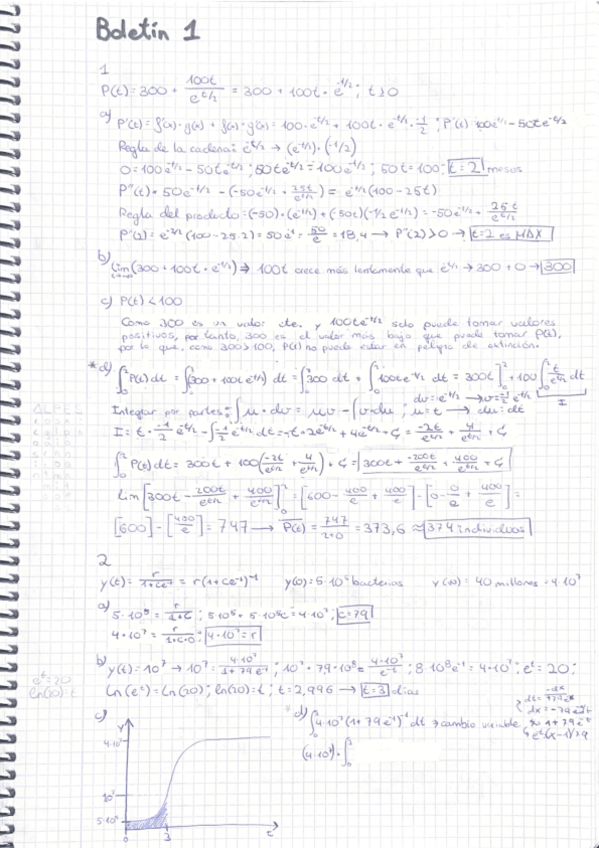 Boletín 1
1
P(t) = 300 + 100t/e^(t/2) = 300 + 100t · e^(-t/2) ; t ≥ 0
a) P'(t) = f'(x) · g(x) + f(x) · g'(x) = 100 · e^(-t/2) + 100t · e^(-t/2) · -1/2 ; P'(t) = 100e^(-t/2) - 50te^(-t/2)
Regla de la cadena: e^(-t/2) → (e^(-t/2)) · (-1/2)
0 = 100e^(-t/2) - 50te^(-t/2) ; 50te^(-t/2) = 100e^(-t/2) ; 50t = 100 ; t = 2 meses
P''(t) = 50e^(-t/2) - (-50e^(-t/2) + 25t/e^(t/2)) = e^(-t/2)(100 - 25t)
Regla del producto = (-50) · (e^(-t/2)) + (-50t)(-1/2 e^(-t/2)) = -50e^(-t/2) + 25t/e^(t/2)
P''(2) = e^(-2/2)(100 - 25·2) = 50e^(-1) = 50/e = 18,4 → P''(2) > 0 → t = 2 es MÁX
b) lim (300 + 100t · e^(-t/2)) ⇒ 100t crece más lentamente que e^(t/2) → 300 + 0 → 300
c) P(t) < 100
Como 300 es un valor y 100te^(-t/2) solo puede tomar valores
positivos, por tanto, 300 es el valor más bajo que puede tomar P(t),
por lo que, como 300 > 100, P(t) no puede estar en peligro de extinción.
*d) ∫₀² P(t) dt = ∫₀² (300 + 100te^(-t/2)) dt = ∫₀² 300 dt + ∫₀² 100te^(-t/2) dt = 300t]₀² + 100 ∫₀² t/e^(t/2) dt
Integrar por partes: ∫u · dv = uv - ∫v · du ; u = t → du = dt
I
∫₀² P(t) dt = 300t + 100(-2t/e^(t/2) + 4/e^(t/2)) + C = 300t + -200t/e^(t/2) + 400/e^(t/2) + C
lim [300t - 200t/e^(t/2) + 400/e^(t/2)]₀² = [600 - 400/e + 400/e] - [0 - 0/e + 400/e] =
[600] - [400/e] = 747 → P(t) = 747/2+0 = 373,6 ≈ 374 individuos
2
y(t) = r/(1+Ce^(-t)) = r(1+Ce^(-t))^(-1) y(0) = 5 · 10⁵ bacterias y(∞) = 40 millones = 4 · 10⁷
a)
5 · 10⁵ = r/(1+C) ; 5·10⁵ + 5·10⁵C = 4·10⁷ ; C = 79
4 · 10⁷ = r/(1+C·0) ; 4·10⁷ = r
b)
y(t) = 10⁷ → 10⁷ = 4·10⁷/(1+79e^(-t)) ; 8·10⁸e^(-t) = 4·10⁷ ; e^t = 20 ;
e^t = 20
ln(20) = t
ln(e^t) = ln(20) ; ln(20) = t ; t = 2,996 → t = 3 días
c)
Y
4·10⁷
10⁷
5·10⁵
0
3
t
d) ∫₀ 4·10⁷(1+79e^(-t))^(-1) dt → cambio variable
(4·10⁷) · ∫₀